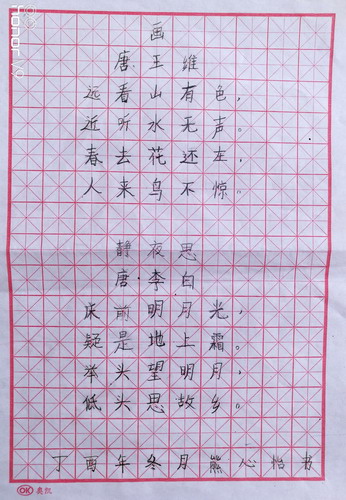 画
唐.王维
远看山有色,
近听水无声。
春去花还在,
人来鸟不惊。
静夜思
唐.李白
床前明月光,
疑是地上霜。
举头望明月,
低头思故乡。
丁酉年冬月熊心怡书
OK 奥凯
honor